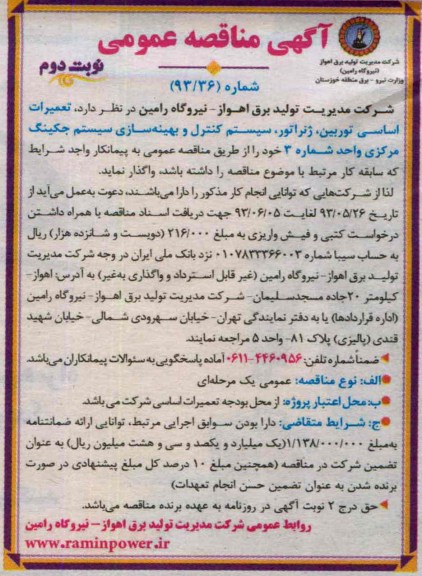 آگهی مناقصه عمومی
شرکت مدیریت تولید برق اهواز
(نیروگاه رامین)
وزارت نیرو - برق منطقه خوزستان
نوبت دوم
شماره (۹۳/۳۶)
شرکت مدیریت تولید برق اهواز- نیروگاه رامین در نظر دارد، تعمیرات
اساسی توربین، ژنراتور، سیستم کنترل و بهینه‌سازی سیستم جکینگ
مرکزی واحد شماره ۳ خود را از طریق مناقصه عمومی به پیمانکار واجد شرایط
که سابقه کار مرتبط با موضوع مناقصه را داشته باشد، واگذار نماید.
لذا از شرکت‌هایی که توانایی انجام کار مذکور را دارا می‌باشند، دعوت به‌عمل می‌آید از
تاریخ ۹۳/۰۵/۲۶ لغایت ۹۳/۰۶/۰۵ جهت دریافت اسناد مناقصه با همراه داشتن
درخواست کتبی و فیش واریزی به مبلغ ۲۱۶/۰۰۰ (دویست و شانزده هزار) ریال
به حساب سیبا شماره ۰۱۰۷۸۳۳۳۶۶۰۰۳ نزد بانک ملی ایران در وجه شرکت مدیریت
تولید برق اهواز- نیروگاه رامین (غیر قابل استرداد و واگذاری به‌غیر) به آدرس: اهواز-
کیلومتر ۲۰جاده مسجدسلیمان- شرکت مدیریت تولید برق اهواز- نیروگاه رامین
(اداره قراردادها) یا به دفتر نمایندگی تهران- خیابان سهرودی شمالی- خیابان شهید
قندی (پالیزی) پلاک ۸۱- واحد ۵ مراجعه نمایند.
ضمناً شماره تلفن: ۴۴۶۰۹۵۶-۰۶۱۱ آماده پاسخگویی به سئوالات پیمانکاران می‌باشد.
الف: نوع مناقصه: عمومی یک مرحله‌ای
ب: محل اعتبار پروژه: از محل بودجه تعمیرات اساسی شرکت می‌باشد.
ج: شرایط متقاضی: دارا بودن سوابق اجرایی مرتبط، توانایی ارائه ضمانتنامه
به‌مبلغ ۱/۱۳۸/۰۰۰/۰۰۰(یک میلیارد و یکصد و سی و هشت میلیون ریال) به عنوان
تضمین شرکت در مناقصه (همچنین مبلغ ۱۰ درصد کل مبلغ پیشنهادی در صورت
برنده شدن به عنوان تضمین حسن انجام تعهدات)
حق درج ۲ نوبت آگهی در روزنامه به عهده برنده مناقصه می‌باشد.
روابط عمومی شرکت مدیریت تولید برق اهواز- نیروگاه رامین
www.raminpower.ir